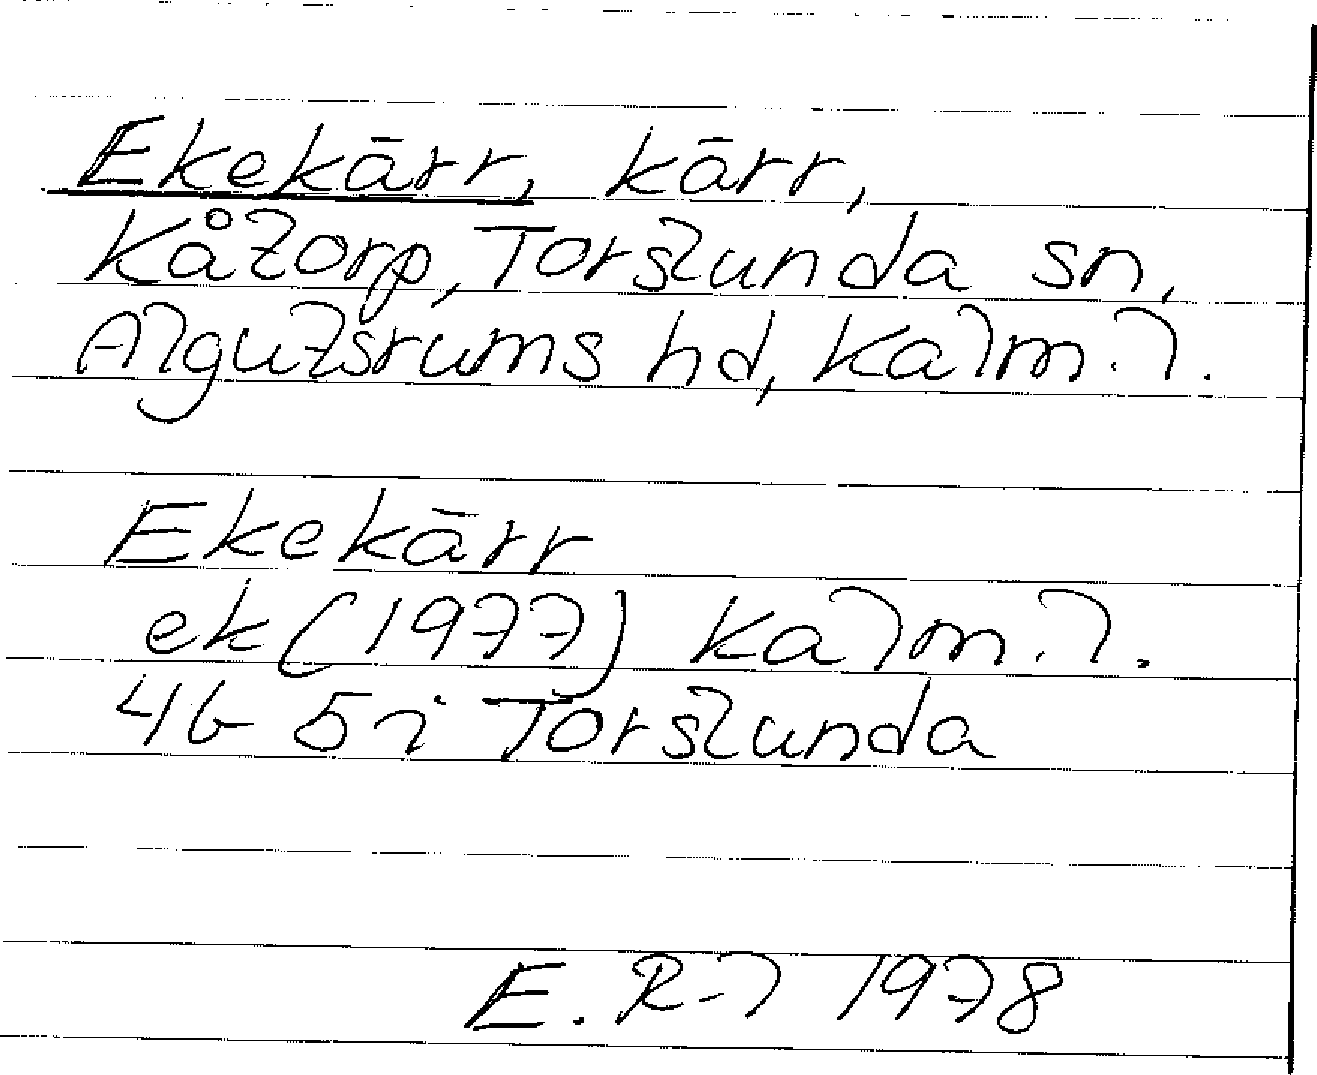 Ekekärr, kärr,
Kåtorp, Torslunda sn,
Algutsrums hd, Kalm. l.
Ekekärr
ek (1977) Kalm. l.
4G 5i Torslunda
E. R-l 1978